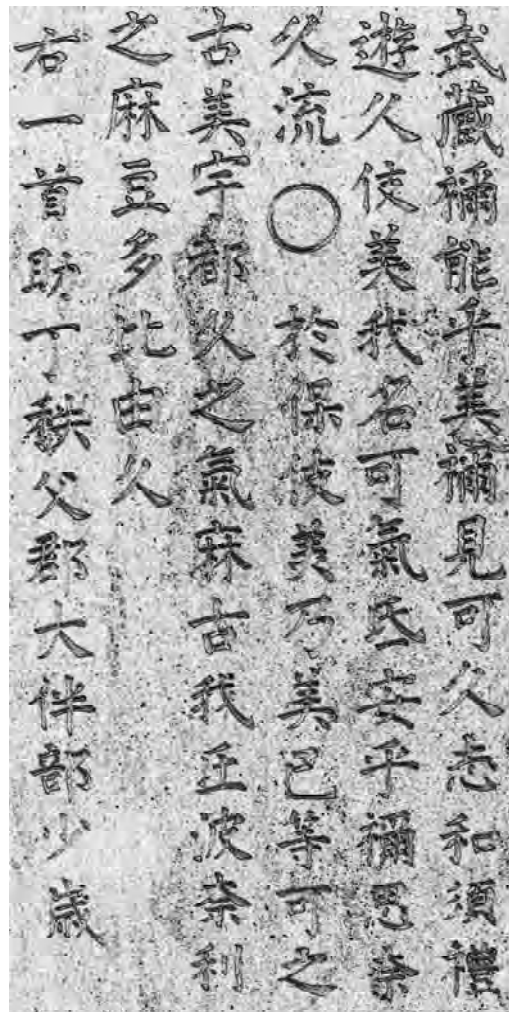 武藏禰能乎美禰見可久志和須禮
遊久伎美我名可氣氐安乎禰思奈
久流 ○ 於保伎美乃美己等可之
古美宇都久之氣麻古我弖波奈利
之麻豆多比由久
右一首助丁秩父郡大伴部少歳